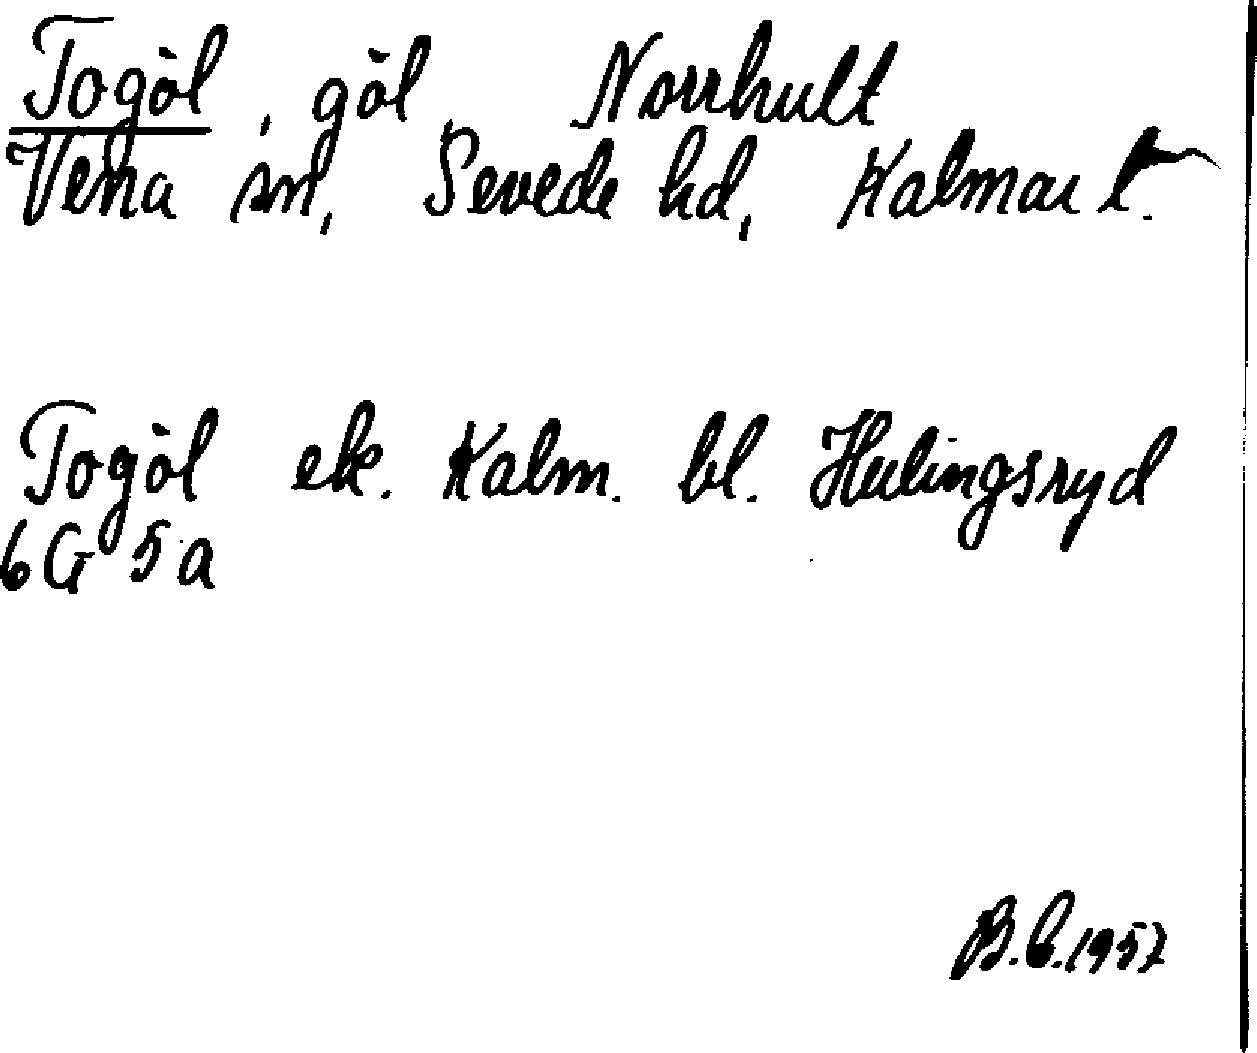 Togöl, göl Norrhult
Vena sn, Sevede hd, Kalmar l.
Togöl ek. Kalm. bl. Hulingsryd
6G 5a
B.E. 1957